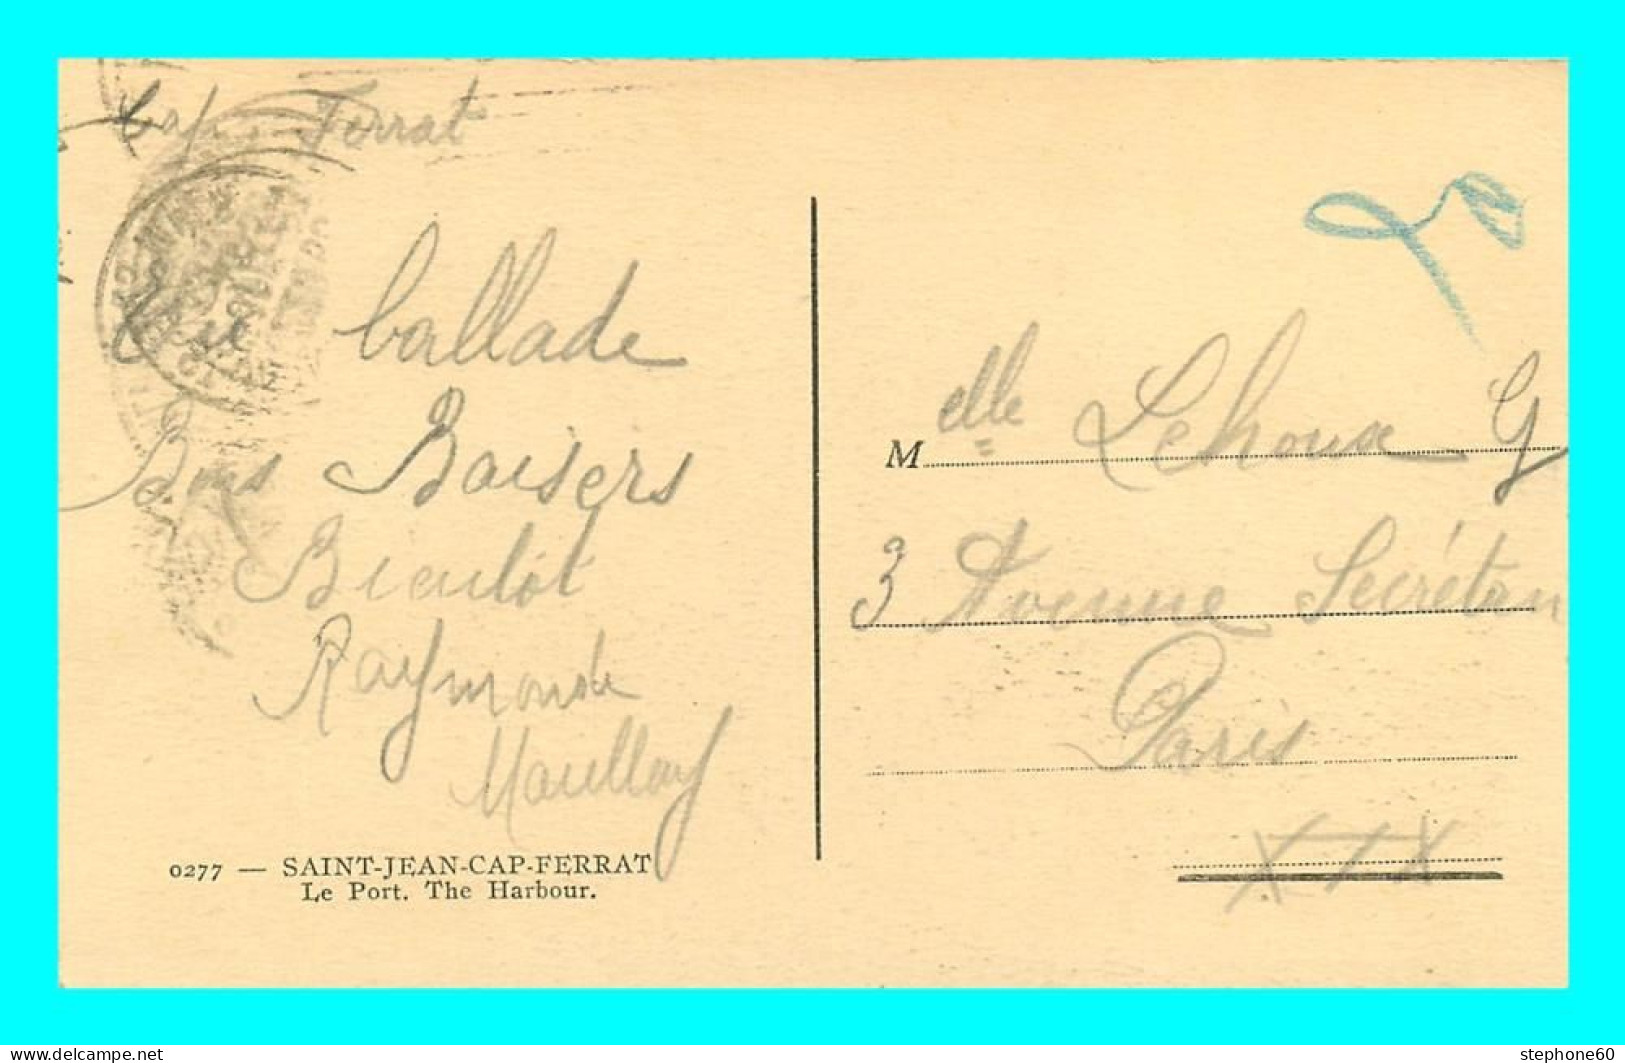 Cap Ferrat
En ballade
Bons Baisers
Bientôt
Raymonde
0277 — SAINT-JEAN-CAP-FERRAT
Le Port. The Harbour.
Melle Lehoux G
3 Avenue Secrétan
Paris
XIX
delcampe.net
stephone60